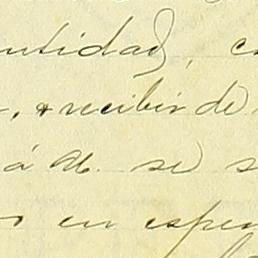 entidad, c
, & recibir de
á M. se s
o en esper